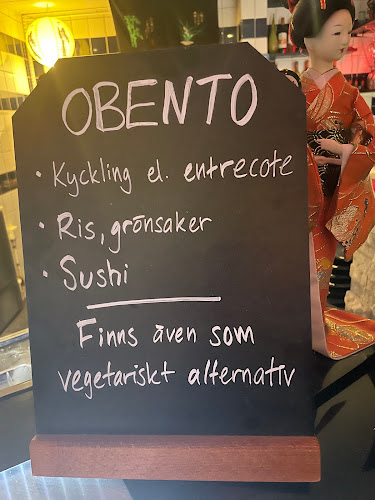 OBENTO
• Kyckling el. entrecote
• Ris, grönsaker
• Sushi
Finns även som
vegetariskt alternativ